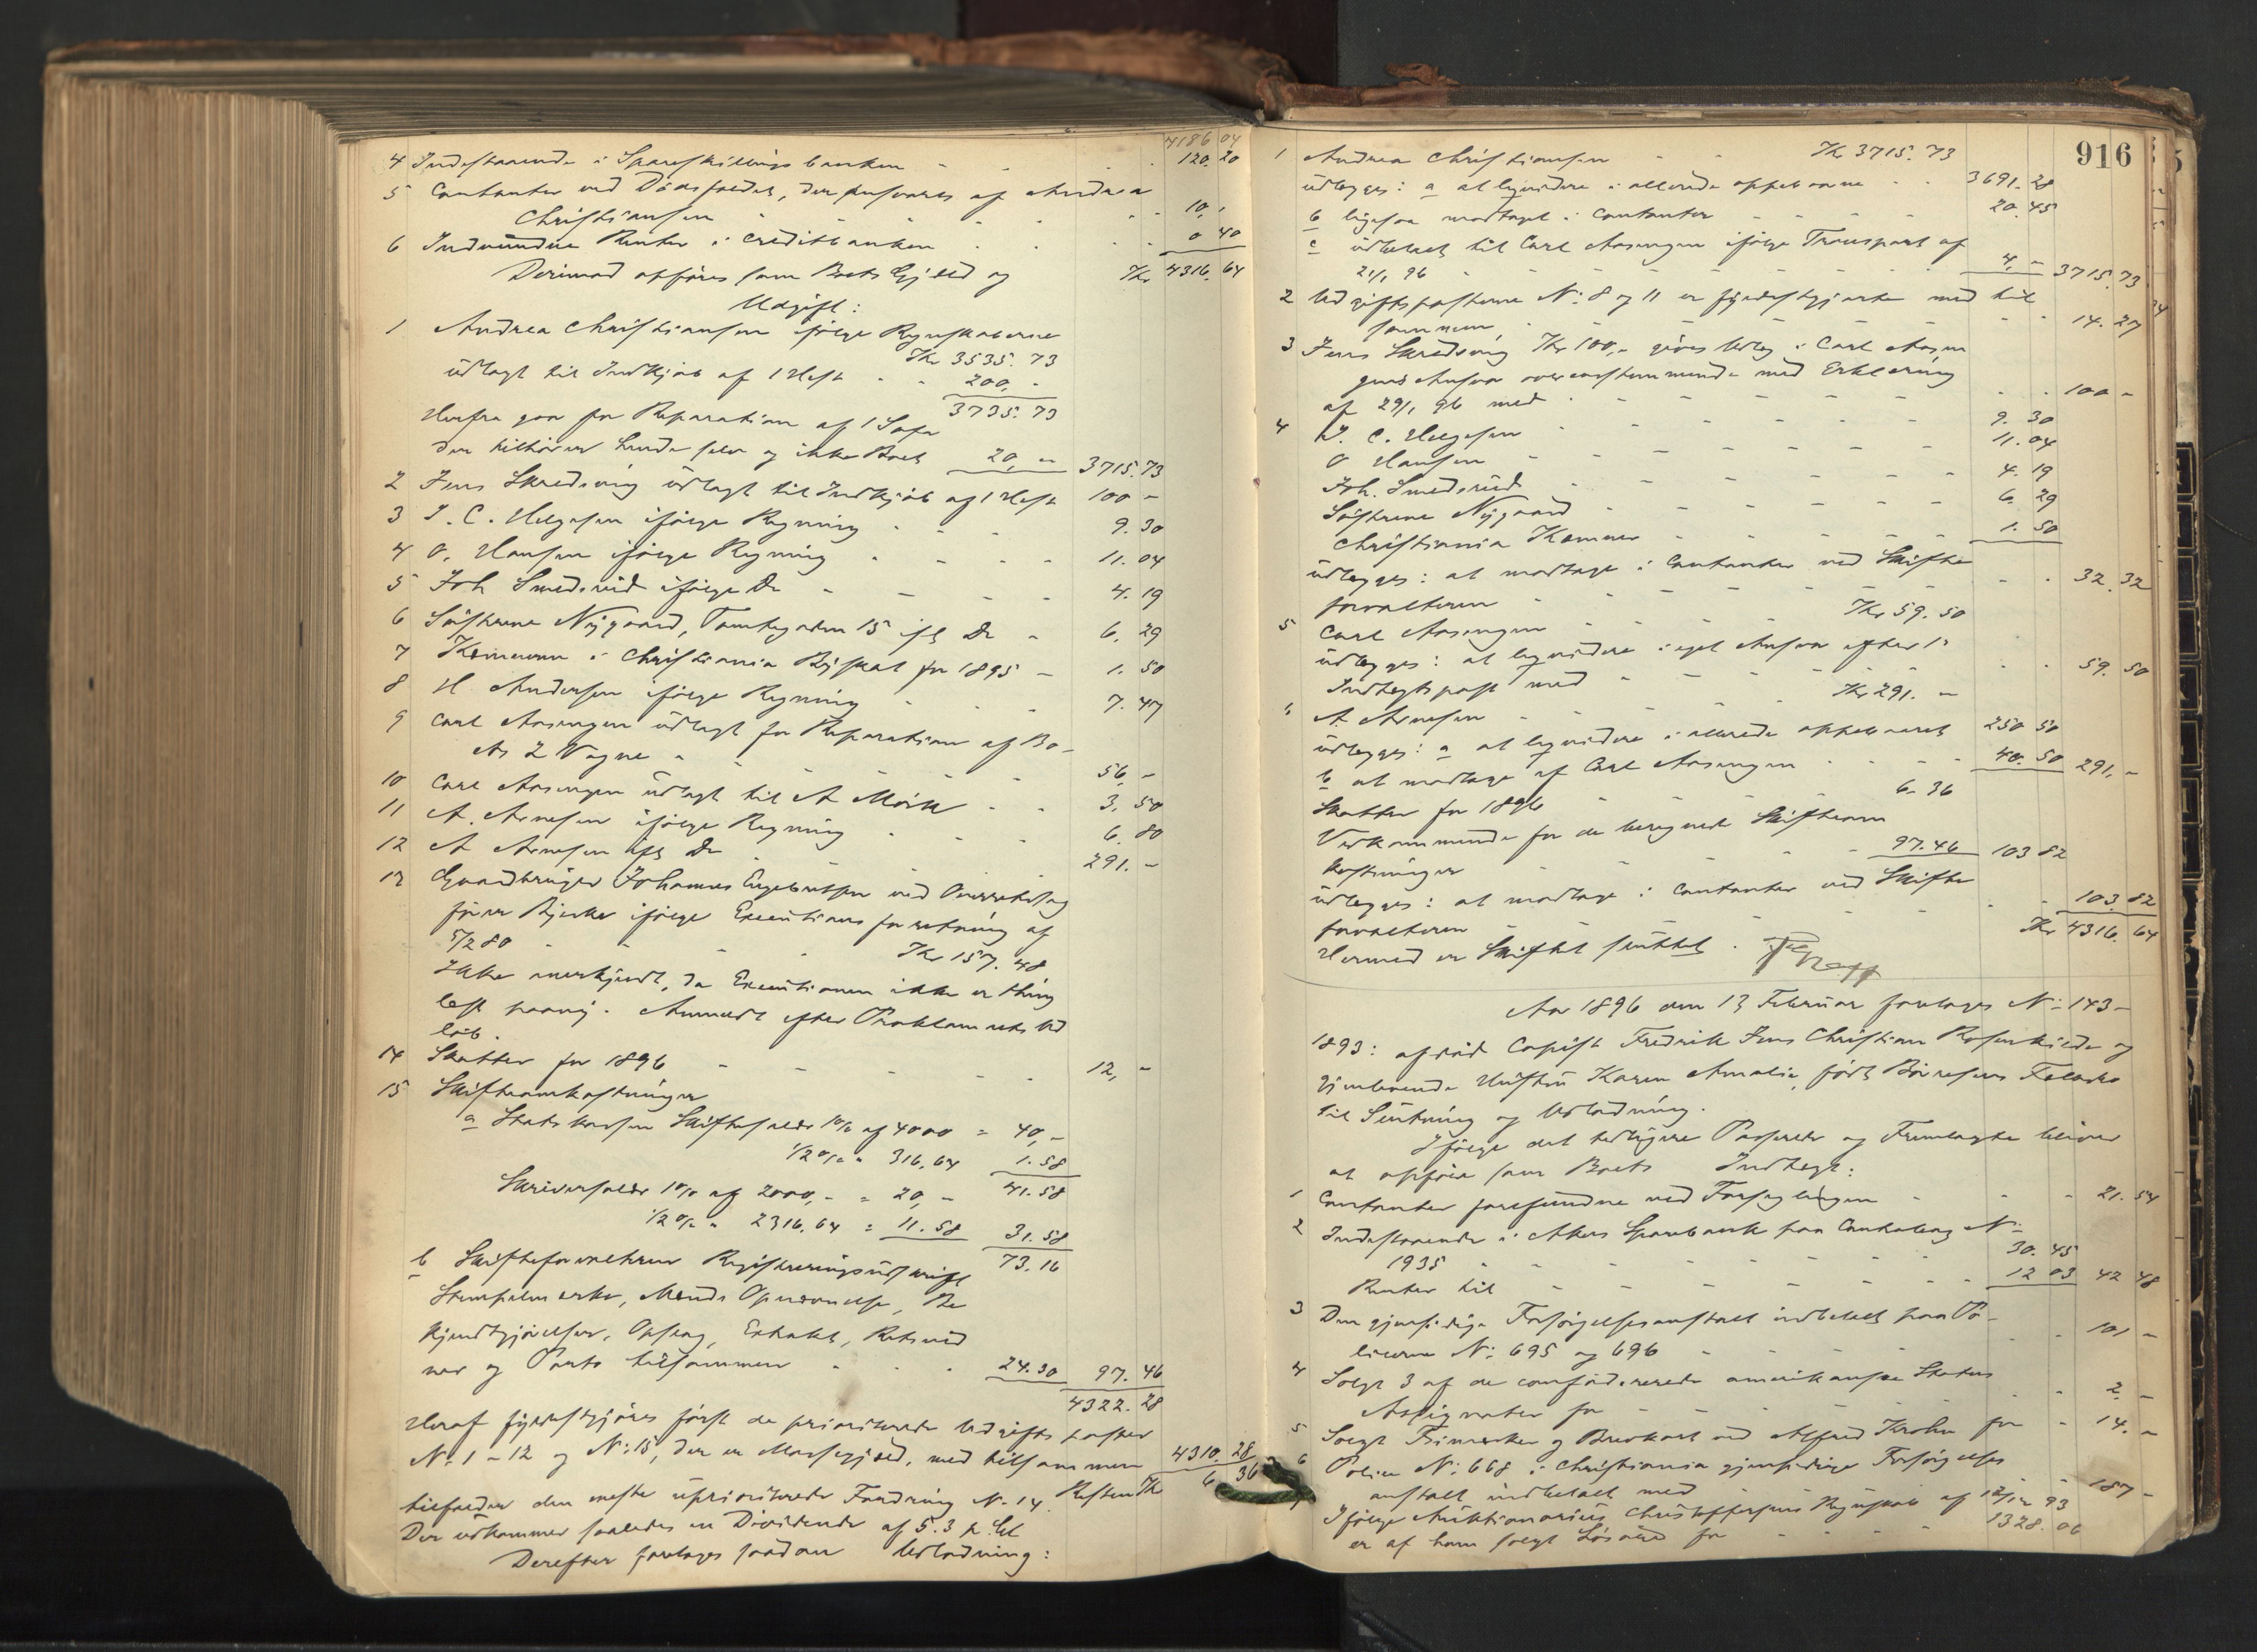 4186 04
4 Indestaaende i Spareskillingsbanken - 120. 20
5 Contanter ved Dødsfaldet, der paahviler af Andrea
Christiansen - 10,,
6 Indvundne Renter i Creditbanken - 0 40
Derimod opføres som Boets Gjæld og Kr 4316. 64
Udgift:
1 Andrea Christiansen ifølge Regnskaberne
Kr 3535. 73
udlagt til Indkjøb af 1 Hest - - 200, -
3735. 73
Herfra gaar for Reparation af 1 Sofa
der tilhører hende selv og ikke Boet 20, - 3715. 73
2 Jens Skredsvig udlagt til Indkjøb af 1 Hest 100 -
3 J. C. Helgesen ifølge Regning - 9. 30
4 O. Hansen ifølge Regning - 11. 04
5 Joh Smedsrud ifølge Do - 4. 19
6 Søstrene Nygaard, Tomtegaden 15 ifg Do - 6. 29
7 Kæmneren i Christiania Byskat for 1895 - 1. 50
8 H. Andersen ifølge Regning - 7. 47
9 Carl Aasengen udlagt for Reparation af Bo-
ets 2 Vogne - 56, -
10 Carl Aasengen udlagt til A Mørk - 3, 50
11 A. Arnesen ifølge Regning - 6. 80
12 A Arnesen ifg Do - 291. -
13 Gaardbruger Johannes Engebretsen ved Overretssag
fører Bjerke ifølge Executionsforretning af
5/2 80 - Kr 157. 48
Ikke anerkjendt, da Executionen ikke er thing
lest paany. Anmeldt efter Proklamaets Ud
løb.
14 Skatter for 1896 - 12, -
15 Skifteomkostninger
a Statskassen Skiftesalær 1% af 4000 = 40, -
1/2 % " 316. 64 1. 58
Skriversalær 1% af 2000, - = 20, - 41. 58
1/2 % " 2316. 64 = 11. 58 31. 58
b Skifteforvalteren Registreringsudskrift 73. 16
Stempelmærke, Mænds Opnævnelse, Be
kjendtgjørelser, Opslag, Extrakt, Retsvid
ner og Porto tilsammen - 24. 30 97. 46
4322. 28
Heraf fyldestgjøres først de prioriterede Udgiftsposter
No 1 - 12 og No: 15, der er Massegjæld, med tilsammen 4310. 28
Resten Kr 6 36
tilfalder den eneste uprioriterede Fordring No 14.
Der udkommer saaledes en Dividende af 53 p. Ct
Derefter foretages saadan Udlodning:
916
1 Andrea Christiansen - - Kr 3715. 73
udlægges: a at liqvidere i allerede oppebaarne - - 3691. 28
b ligesaa modtaget i Contanter - 20. 45
c udbetalt til Carl Aasengen ifølge Transport af
21/1 96 - 4, - 3715. 73
2 Udgiftsposterne No: 8 og 11 er fyldestgjorte med til
sammen - 14. 27
3 Jens Skredsvig Kr 100, - gives Udlæg i Carl Aasen
gens Ansvar overensstemmende med Erklæring
af 29/1 96 med - 100 -
4 J. C. Helgesen - 9. 30
O Hansen - 11. 04
Joh. Smedsrud - 4. 19
Søstrene Nygaard - 6. 29
Christiania Kæmner - 1. 50
udlægges: at modtage i Contanter ved Skifte
forvalteren - 32. 32
5 Carl Aasengen - Kr 59. 50
udlægges: at liqvidere i eget Ansvar efter 1ste
Indtægtspost med - 59. 50
6 A. Arnesen - Kr 291. -
udlægges: a at liqvidere i allerede oppebaaret 250 50
b at modtage af Carl Aasengen - 40. 50 291, -
Skatter for 1896 - 6. 36
Vedkommende for de beregnede Skifteom
kostninger - 97. 46 103 82
udlægges: at modtage i Contanter ved Skifte
forvalteren - 103. 82
Kr 4316. 64
Hermed er Skiftet sluttet.
Aar 1896 den 13 Februar foretoges No: 143 -
1893: afdød Copist Fredrik Jens Christian Rosenkilde og
gjenlevende Hustru Karen Amalie, født Børresens Fællesbo
til Slutning og Udlodning.
Ifølge det tidligere Passerede og Fremlagte bliver
at opføre som Boets Indtægt:
1 Contanter forefundne ved Forseglingen - 21. 54
2 Indestaaende i Akers Sparebank paa Contrabog No:
1935 - 30. 45
Renter til - 12 03 42 48
3 Den gjensidige Forsørgelsesanstalt indbetalt paa Po-
licerne No: 695 og 696 - 101 -
4 Solgt 3 af de confødererede amerikanske Staters
Assignater for - 2. -
5 Solgt Frimærker og Brevkort ved Alfred Krohn for - 14. -
6 Police No: 668 i Christiania gjensidige Forsørgelses
anstalt indbetalt med - 187 -
7 Ifølge Auktionarius Christophersens Regnskab af 12/12 93
er af ham solgt Løsøre for - 1328. 06